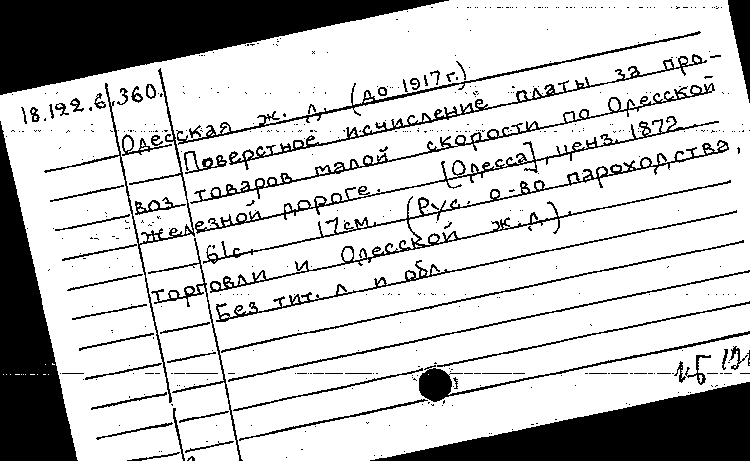 18.122.6.360.
Одесская ж. д. (до 1917 г.)
Поверстное исчисление платы за про-
воз товаров малой скорости по Одесской
железной дороге. [Одесса], ценз. 1872.
61с. 17см. (Рус. о-во пароходства,
торговли и Одесской ж.д.).
Без тит. л и обл.